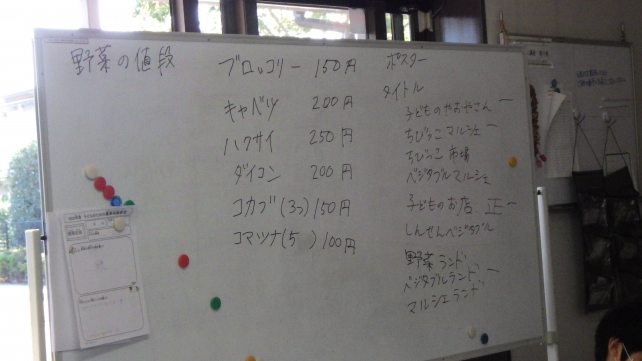 野菜の値段
ブロッコリー 150円
キャベツ 200円
ハクサイ 250円
ダイコン 200円
コカブ(3つ) 150円
コマツナ(5 ) 100円
ポスター
タイトル
子どものやおやさん 一
ちびっこマルシェ 一
ちびっこ市場
ベジタブルマルシェ
子どものお店 正一
しんせんベジタブル
野菜ランド
ベジタブルランド 一
マルシェランド